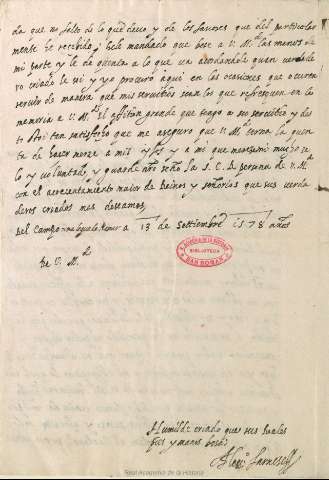 da que no falto de lo que devo, y de los favores que del particular
mente he recebido, hele mandado que bese a V. M.d las manos de
mi parte y le de quenta a lo que va acordandole quan verdade
ro criado le soy y yo procuro aqui en las ocasiones que ocurren
servir de manera que mis servicios sean los que refresquen en la
memoria a V. M.d el affition grande que tengo a su servicio y des
to tan satisfecho que me aseguro que V. M.d terna la quen
ta de hazer merced a mis y a mi que merescemi mucho ze
lo y voluntad, y guarde nro señor la S. C. R. persona de V. M.d
con el acrecentamiento maior de Reinos y señorios que sus verda
deros criados mas deseamos,
Del Campo a 13 de Settiembre 1578 años
De V. M.d
REAL ACADEMIA DE LA HISTORIA
BIBLIOTECA
SAN ROMAN
Humilde criado que sus Reales
pies y manos besa
Alex.o Farnese
Real Academia de la Historia